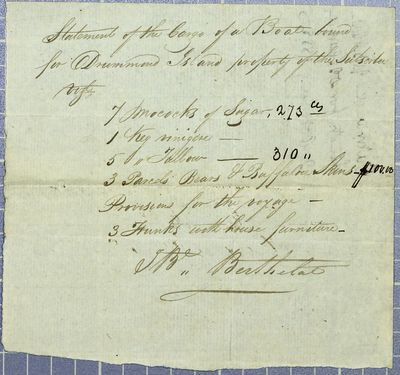 Statement of the Cargo of a Boat bound
for Drummond Island property of the Subscriber
vizt
7 Mococks of Sugar, 273 lbs
1 Keg vinigere —
5 Do Tallow — 310 "
3 Parcels Bears & Buffaloe Skins — $100.00
Provisions for the voyage —
3 Trunks with house furniture —
J Bt Berthelot